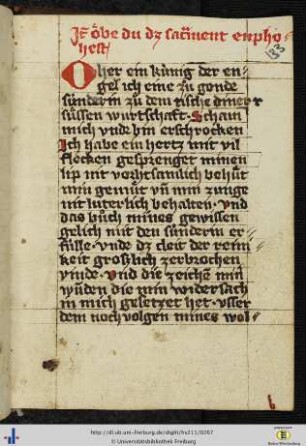 It̄ ob̊e du dz sac̄ment enpho-
hest
O her ein kúnig der en-
gel ich eine zů gonde
súnderin zů dem tische diner
sússen wurtschaft Scham
mich vnde bin erschrocken
Ich habe ein hertz mit vil
flecken gesprenget minen
lip mit vorhtsamlich behůt
min gemůt vn̄ min zunge
nit luterlich behalten vnd
das bůch mines gewissen
gelich mit den súnderin er-
fúlle vnde dz cleit der rein-
keit groslich zerbrochen
vinde vnd die zeichē min
wūden die min widersach
in mich gesetzet het vsser
dem noch volgen mines wol-
http://dl.ub.uni-freiburg.de/diglit/hs211/0267
© Universitätsbibliothek Freiburg